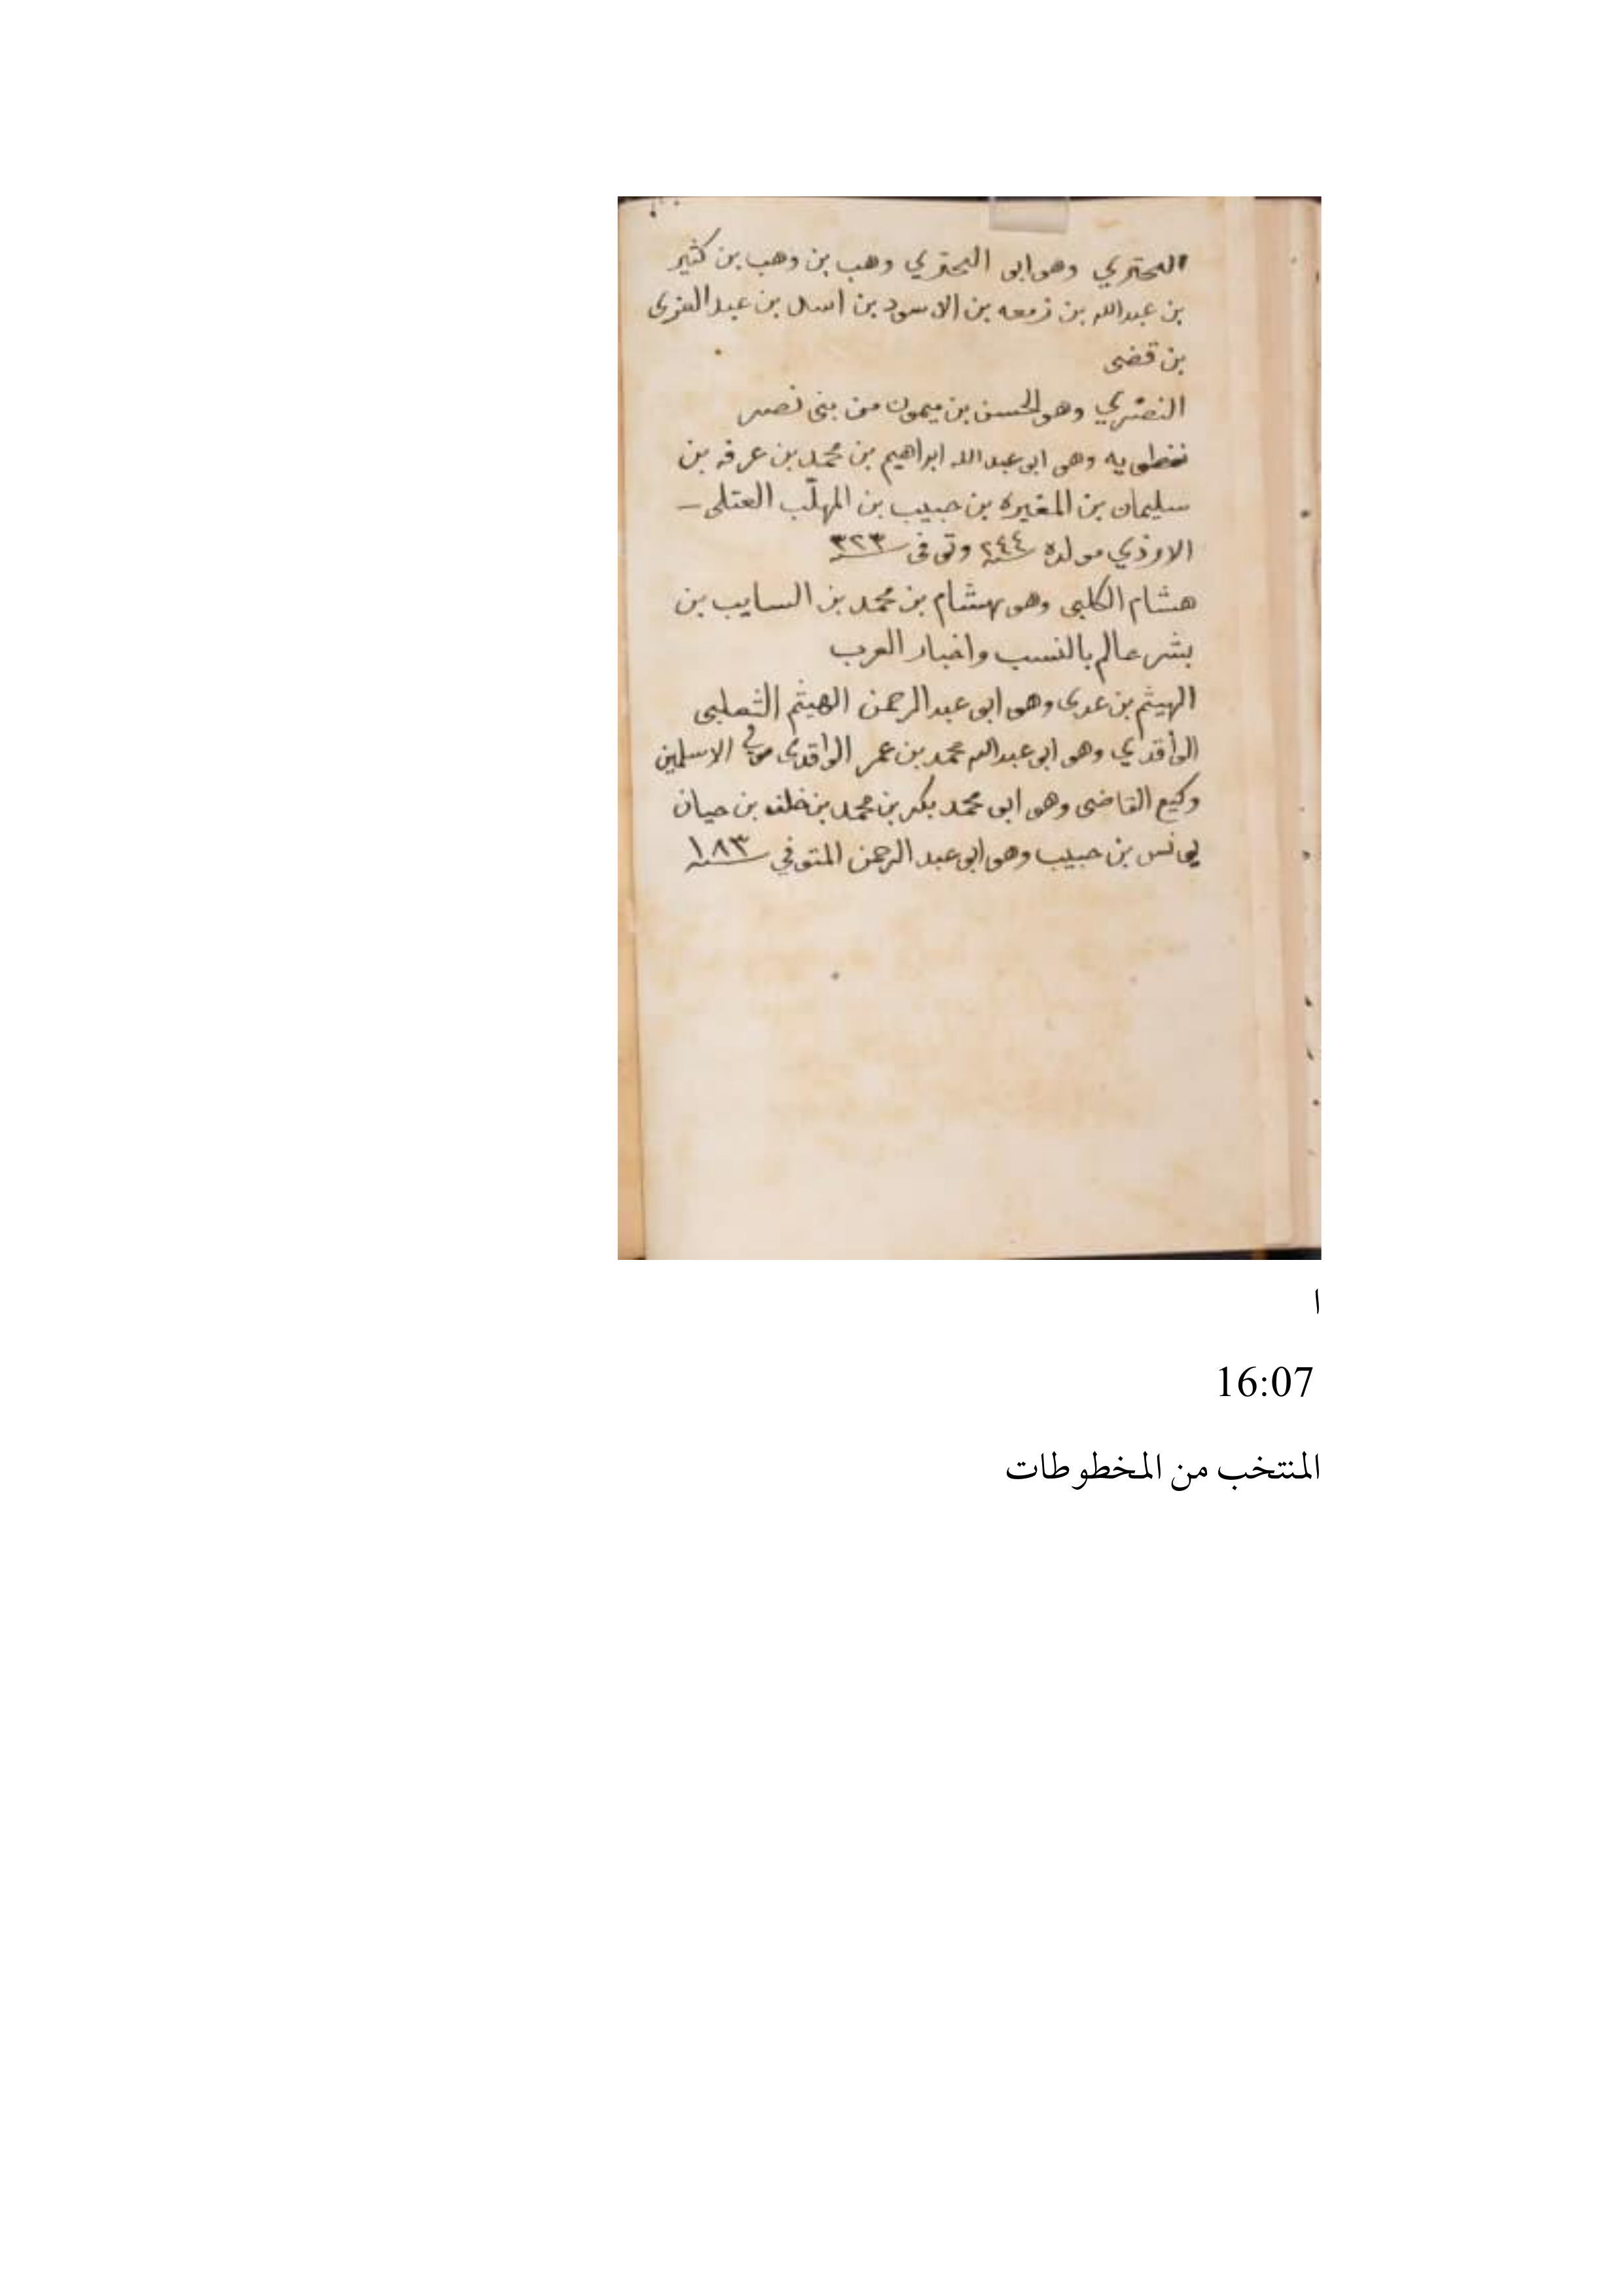 البحتري وهو ابو البحتري وهب بن وهب بن كثير
بن عبدالله بن زمعه بن الاسود بن اسد بن عبدالعزى
بن قضى
النصري وهو الحسن بن ميمون من بنى نصر
نفطويه وهو ابو عبدالله ابراهيم بن محمد بن عرفه بن
سليمان بن المغيره بن حبيب بن المهلّب العتلى
الازدي مولده سنة ٢٤٤ وتوفى سنة ٣٢٣
هشام الكلبى وهو هشام بن محمد بن السايب بن
بشر عالم بالنسب واخبار العرب
الهيثم بن عدى وهو ابو عبدالرحمن الهيثم الثعلبى
الواقدي وهو ابو عبدالله محمد بن عمر الواقدى مولى الاسلمين
وكيع القاضى وهو ابو محمد بكر بن محمد بن خلف بن حيان
يونس بن حبيب وهو ابو عبد الرحمن المتوفي سنة ١٨٣
ا
16:07
المنتخب من المخطوطات